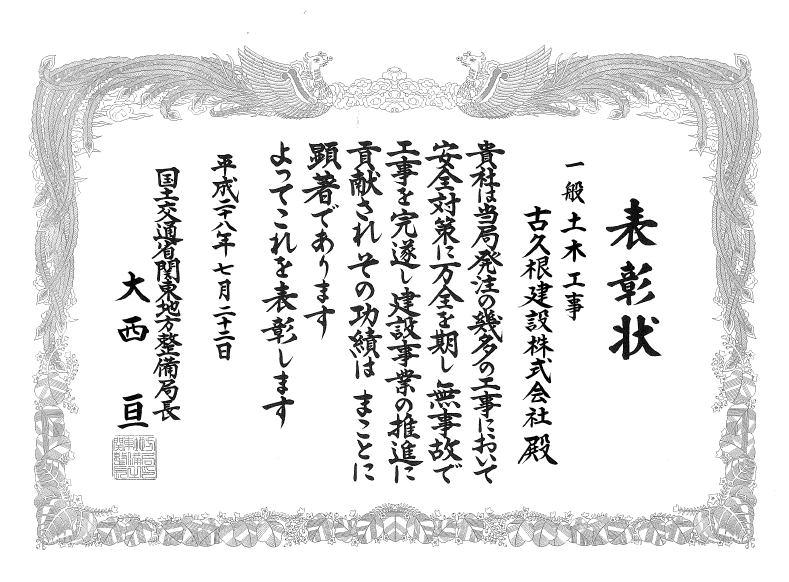 表彰状
一般土木工事
古久根建設株式会社 殿
貴社は当局発注の幾多の工事において
安全対策に万全を期し無事故で
工事を完遂し建設事業の推進に
貢献されその功績は まことに
顕著であります
よってこれを表彰します
平成二十八年七月二十二日
国土交通省関東地方整備局長
大西 亘